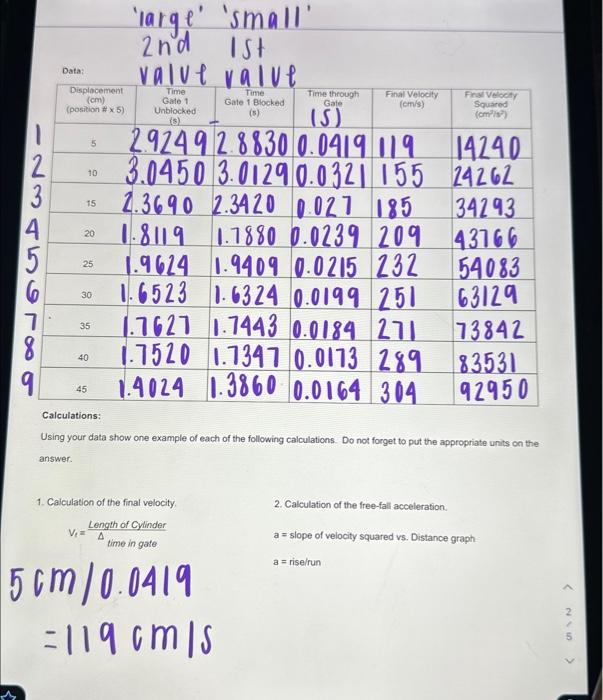 'large' 'small'
2nd 1st
value value
Data:
Displacement (cm) (position # x 5) Time Gate 1 Unblocked (s) Time Gate 1 Blocked (s) Time through Gate (s) Final Velocity (cm/s) Final Velocity Squared (cm²/s²)
1 5 2.9249 2.8830 0.0419 119 14240
2 10 3.0450 3.0129 0.0321 155 24262
3 15 2.3690 2.3420 0.027 185 34293
4 20 1.8119 1.7880 0.0239 209 43766
5 25 1.9624 1.9409 0.0215 232 54083
6 30 1.6523 1.6324 0.0199 251 63129
7 35 1.7627 1.7443 0.0184 271 73842
8 40 1.7520 1.7347 0.0173 289 83531
9 45 1.4024 1.3860 0.0164 304 92950
Calculations:
Using your data show one example of each of the following calculations. Do not forget to put the appropriate units on the
answer.
1. Calculation of the final velocity.
Vf = Length of Cylinder
Δ time in gate
5 cm / 0.0419
= 119 cm/s
2. Calculation of the free-fall acceleration.
a = slope of velocity squared vs. Distance graph
a = rise/run
2 / 5